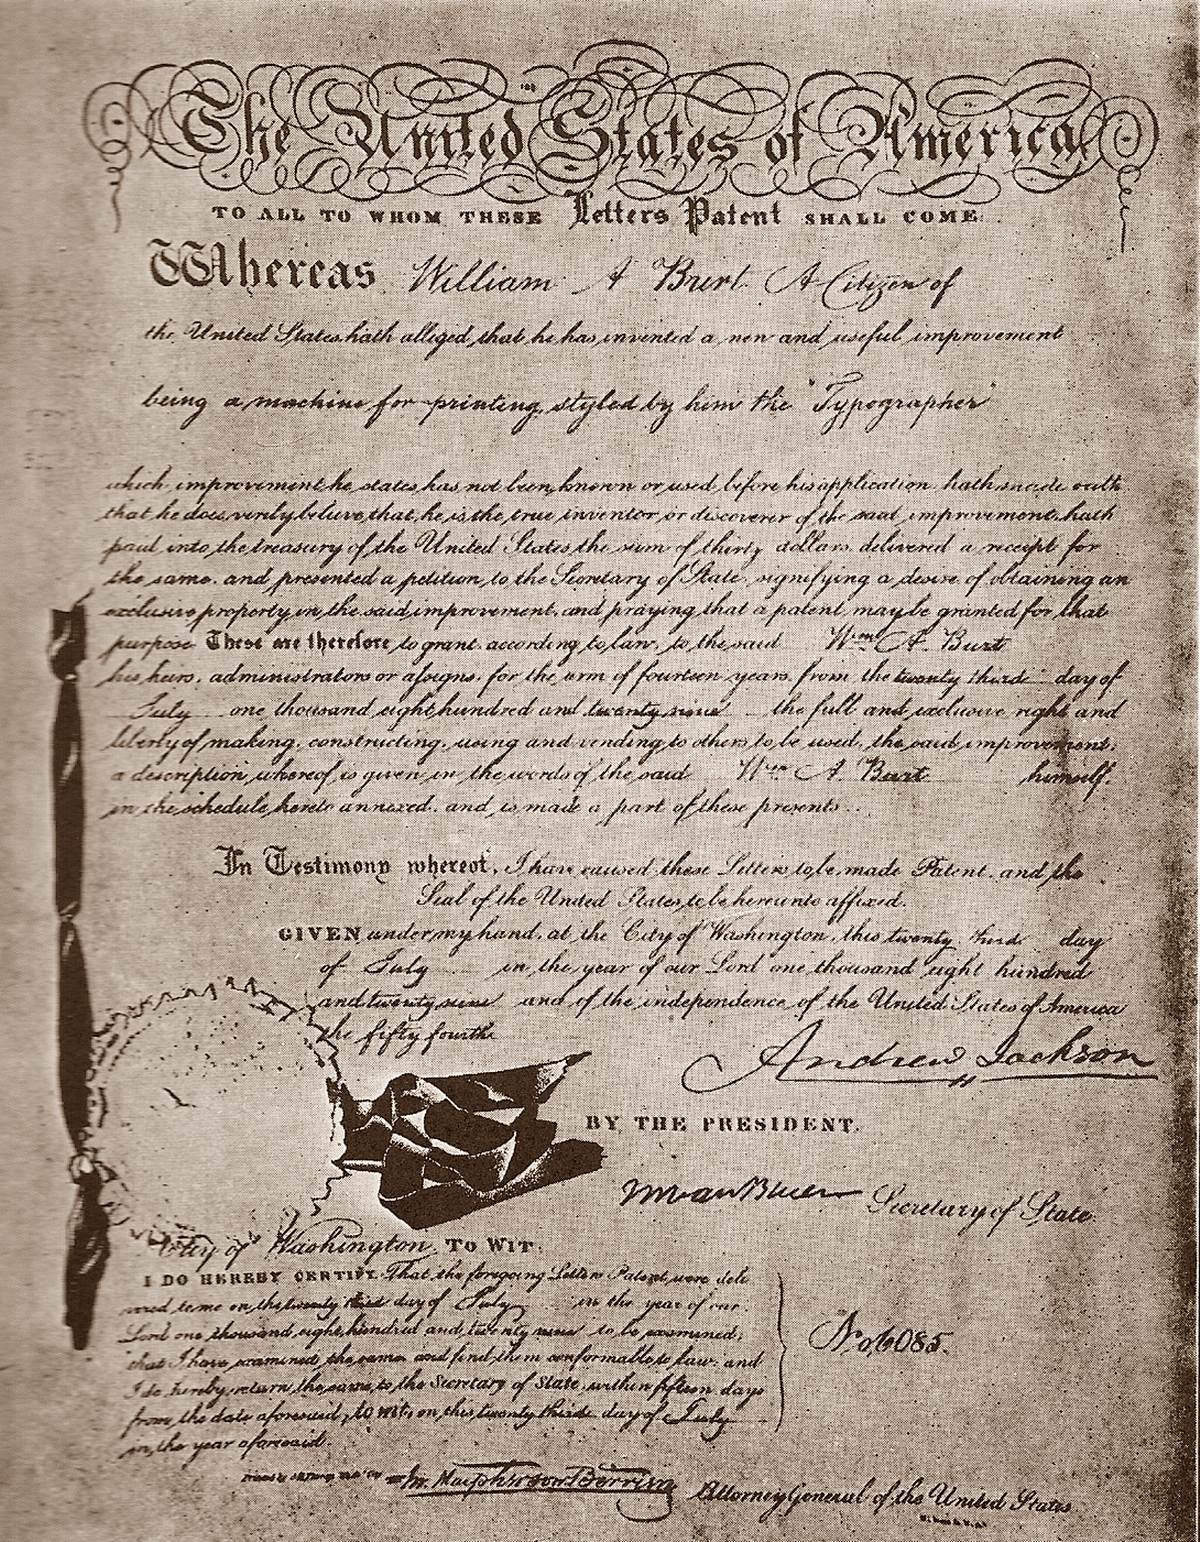 The United States of America
TO ALL TO WHOM THESE Letters Patent SHALL COME:
Whereas William A Burt A Citizen of
the United States, hath alleged, that he has invented a new and useful improvement
being a machine for printing, styled by him the "Typographer"
which improvement he states has not been known or used before his application hath made oath
that he does verily beleive that he is the true inventor or discoverer of the said improvement, hath
paid into the treasury of the United States, the sum of thirty dollars, delivered a receipt for
the same, and presented a petition to the Secretary of State, signifying a desire of obtaining an
exclusive property in the said improvement, and praying that a patent may be granted for that
purpose. These are therefore to grant, according to law, to the said Wm A. Burt
his heirs, administrators or assigns, for the term of fourteen years, from the twenty third day of
July one thousand eight hundred and twenty nine the full and exclusive right and
liberty of making, constructing, using and vending to others to be used, the said improvement,
a description whereof is given in the words of the said Wm A. Burt himself,
in the schedule hereto annexed, and is made a part of these presents.
In Testimony whereof, I have caused these Letters to be made Patent, and the
Seal of the United States, to be hereunto affixed.
GIVEN under my hand, at the City of Washington, this twenty third day
of July in the year of our Lord one thousand eight hundred
and twenty nine and of the independence of the United States of America
the fifty fourth
Andrew Jackson
BY THE PRESIDENT.
M van Buren Secretary of State
City of Washington, TO WIT:
I DO HEREBY CERTIFY, That the foregoing Letters Patent, were deli
vered to me on the twenty third day of July in the year of our
Lord one thousand eight hundred and twenty nine to be examined;
that I have examined the same and find them conformable to law, and
I do hereby return the same to the Secretary of State, within fifteen days
from the date aforesaid, to wit, on this twenty third day of July
in the year aforesaid.
No. 6085.
Jn. Macpherson Berrien Attorney General of the United States